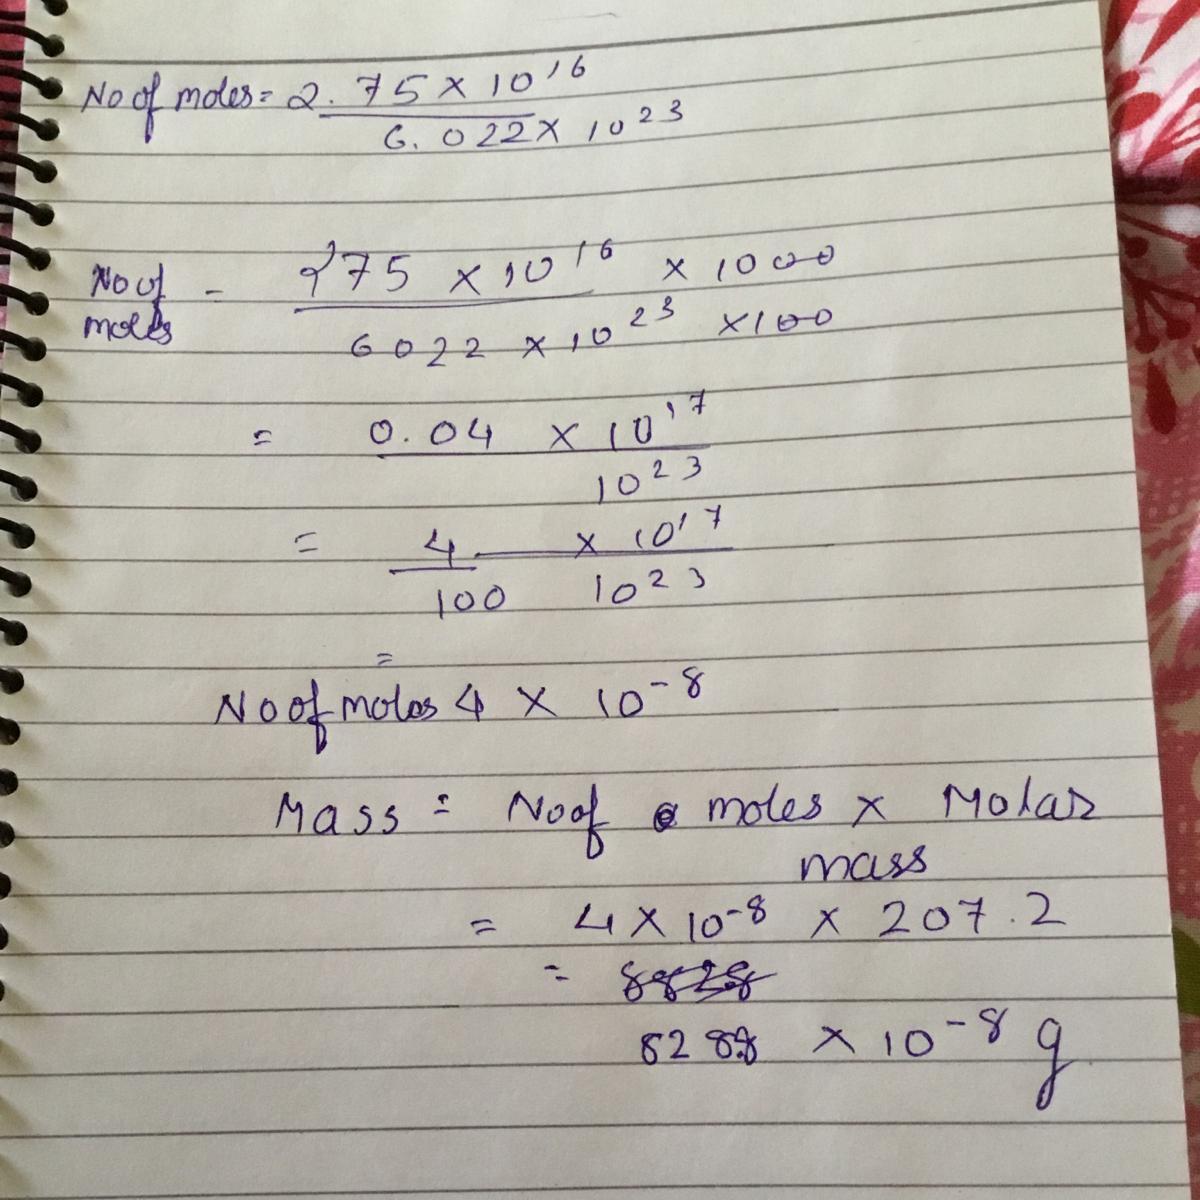 No of moles = 2.75 × 10^16
6.022 × 10^23
No of moles = 275 × 10^16 × 1000
6022 × 10^23 × 100
= 0.04 × 10^17
10^23
= 4 × 10^17
100 10^23
=
No of moles 4 × 10^-8
Mass = No of moles × Molar
mass
= 4 × 10^-8 × 207.2
=
× 10^-8 g